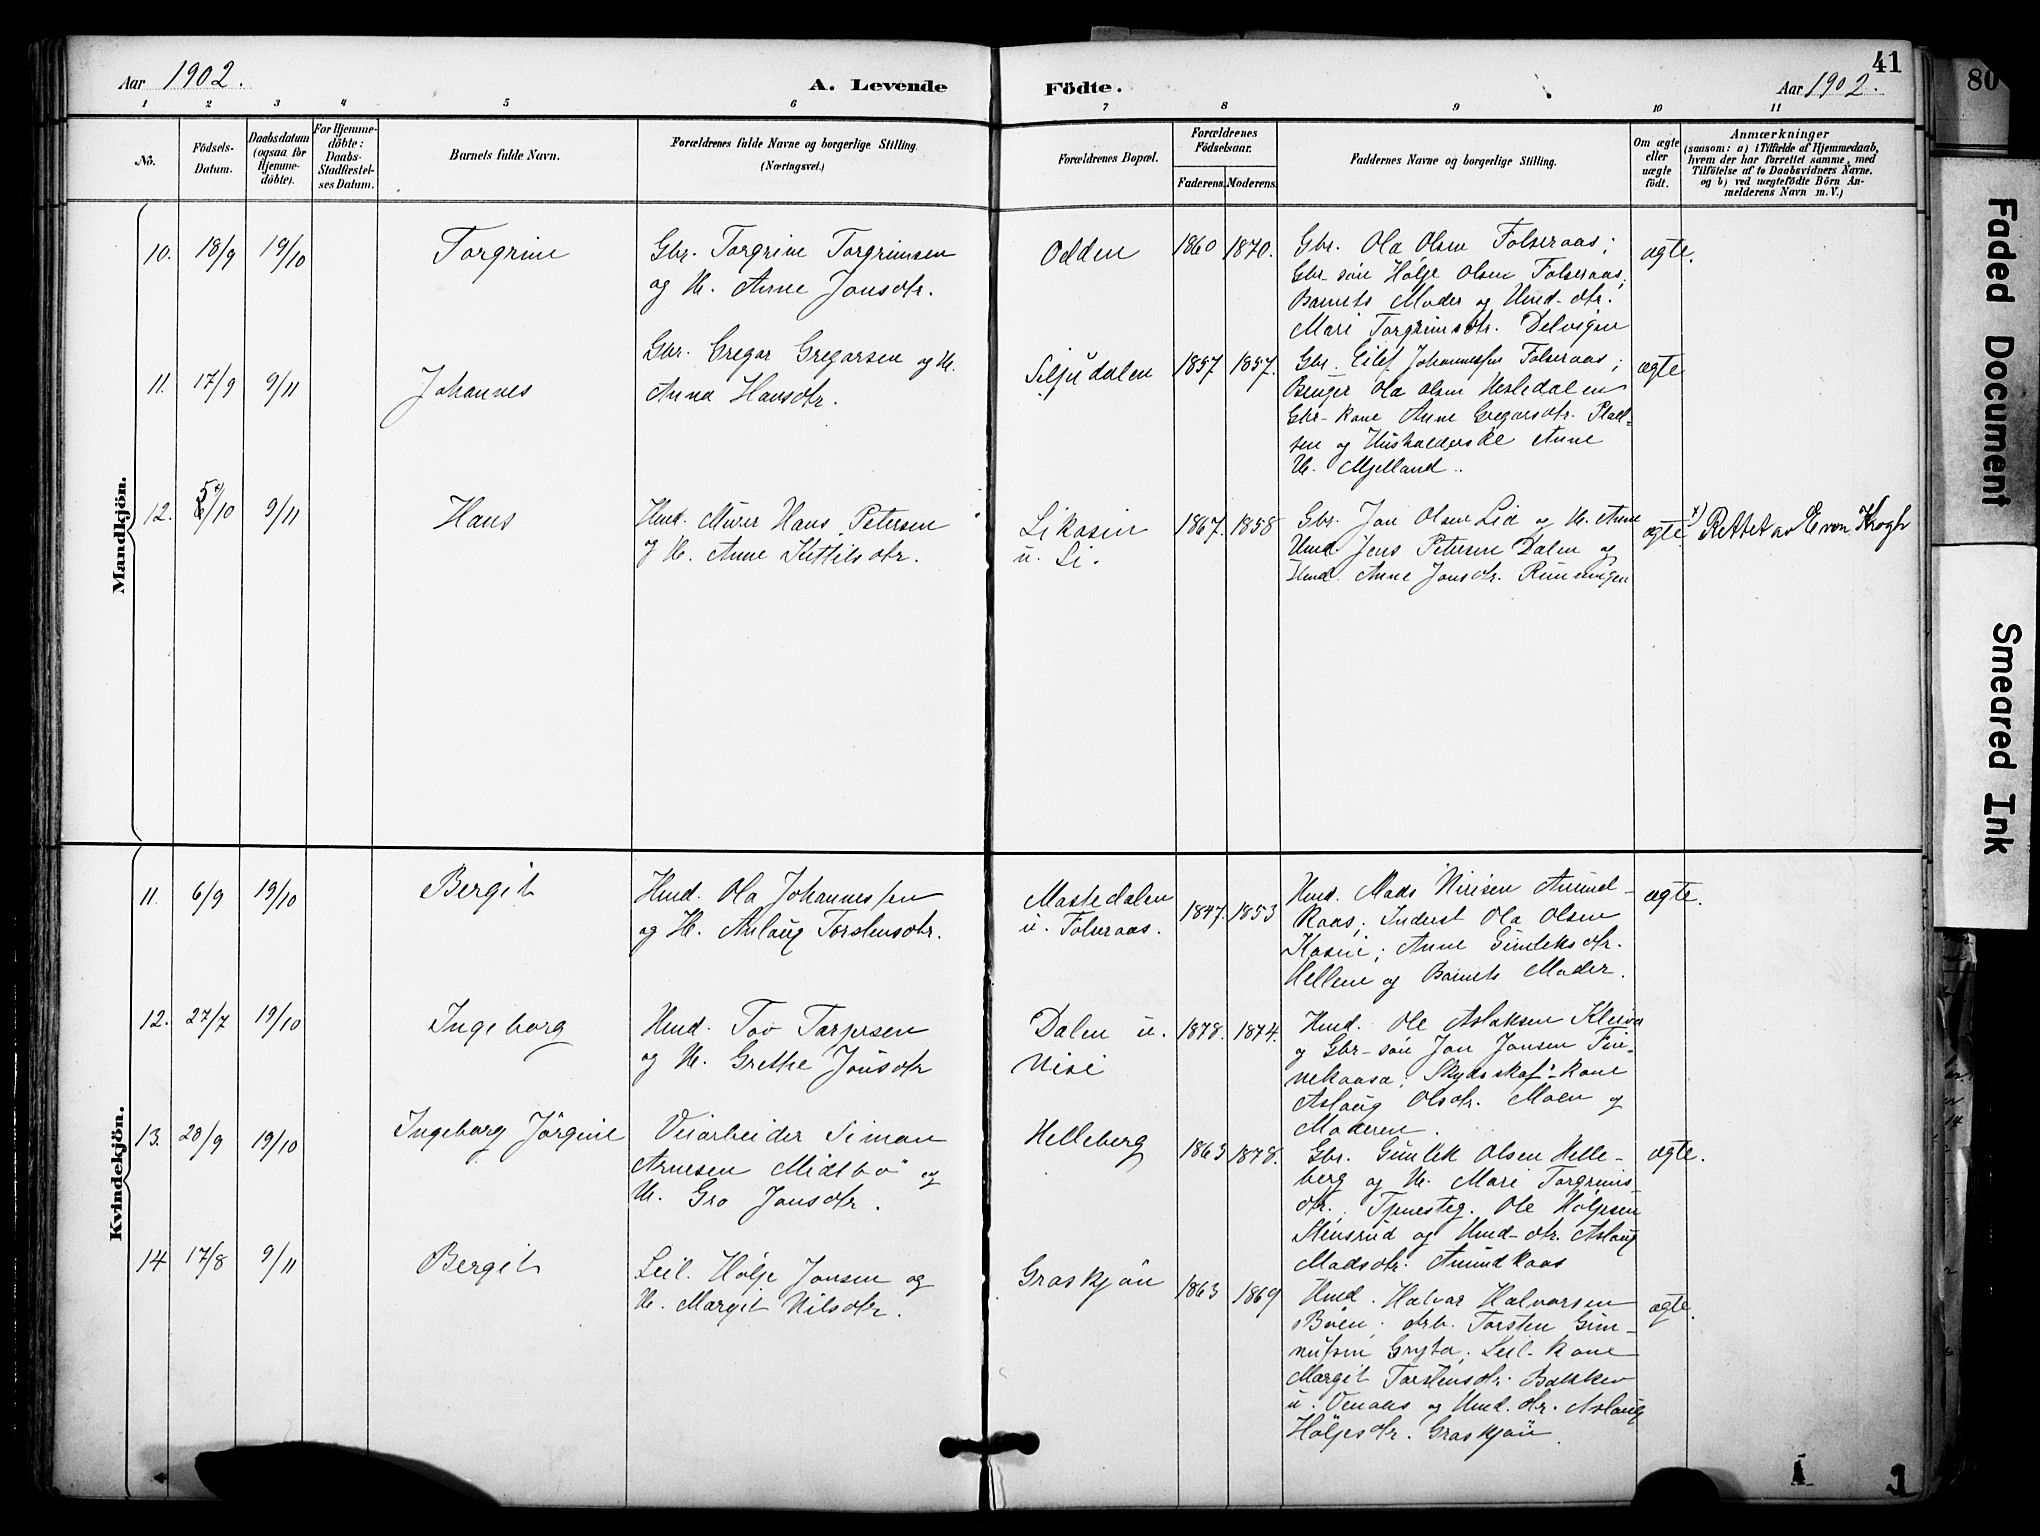 41
80
Aar 1902.
A. Levende Födte.
Aar 1902.
1 2 3 4 5 6 7 8 9 10 11
No.
Födsels-Datum.
Daabsdatum (ogsaa for Hjemmedöbte).
For Hjemmedöbte: Daabs-Stadfæstelses Datum.
Barnets fulde Navn.
Forældrenes fulde Navne og borgerlige Stilling.
(Næringsvei.)
Forældrenes Bopæl.
Forældrenes Födselsaar.
Faderens. Moderens.
Faddernes Navne og borgerlige Stilling.
Om ægte eller uægte födt.
Anmærkninger
(saasom: a) i Tilfælde af Hjemmedaab,
hvem der har forrettet samme, med
Tilföielse af to Daabsvidners Navne.
og b) ved uægtefödte Börn An-
melderens Navn m. V.)
Mandkjön.
10. 18/9 19/10 Torgrim
Gbr. Torgrim Torgrimsen
og H. Anne Jonsdtr.
Odden 1860 1870.
Gbr. Ola Olsen Folseraas;
Gbr søn Hølje Olsen Folseraas;
Barnets Moder og Hmd-dtr.
Mari Torgrimsdtr. Delvigen
ægte.
11. 17/9 9/11 Johannes
Gbr. Gregar Gregarsen og H.
Anna Hansdtr.
Siljudalen 1857 1857.
Gbr. Eilef Johannesen Folseraas;
Ola Olsen Hesledalen
Gbr-kone Anne Gregarsdtr. Plas-
sen og Husholderske Anne
H. Mjelland..
ægte
12. 5/10 9/11 Hans
Hmd. Murer Hans Petersen
og H. Anne Kettilsdtr.
Likasin
u. Li.
1867. 1858
Gbr. Jon Olsen Lid og H. Anne
Hmd. Jens Petersen Dalen og
Hmd. Anne Jonsdtr. Rimmingen
ægte.
x) Rettet av E von Krogh
Kvindekjön.
11. 6/9 19/10 Bergit
Hmd. Ola Johannessen
og H. Aslaug Torstensdtr.
Mastedalen
u. Folseraas.
1847. 1853
Hmd. Mads Nirisen Amund-
kaas; Inderst Ola Olsen
Kasin; Anne Gunleksdtr.
Hellene og Barnets Moder.
ægte.
12. 27/7 19/10 Ingeborg
Hmd. Tov Tarjersen
og H. Grethe Jonsdtr
Dalen u.
Nisi
1878. 1874.
Hmd. Ole Aslaksen Kleiva
og Gbr-søn Jon Jonsen Fin-
nekaasa; Skydsskaf.-kone
Aslaug Olsdtr. Moen og
Moderen.
13. 28/9 19/10 Ingeborg Jörgine
Veiarbeider Simon
Arnesen Midtbö og
H. Gro Jonsdtr.
Helleberg 1863 1878.
Gbr. Gunlek Olsen Helle-
berg og H. Mari Torgrims-
dtr. Tjenesteg. Ole Höljesen
Stensrud og Hmd-dtr. Aslaug
Madsdtr. Amundkaas
ægte.
14 17/8 9/11 Bergit
Leil. Hølje Jonsen og
H. Margit Nilsdtr.
Graskjön 1863 1869
Hmd. Halvar Halvorsen
Bøen; Arb. Torsten Gun-
nufsen Gryta; Leil-kone
Margit Torstensdtr. Bakken
u. Venaas og Hmd.dtr. Aslaug
Höljesdtr. Graskjön
ægte.
Faded Document
Smeared Ink